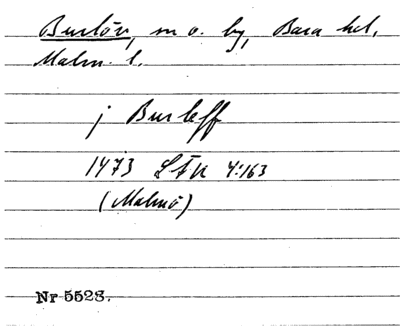 Burlöv, sn o. by, Bara hd,
Malm. l.
j Burleff
1473 LÅU 4:163
(Malmö)
Nr 5528.